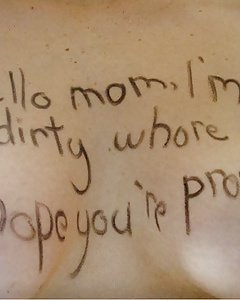 llo mom, I'm
dirty whore
ope you're pro